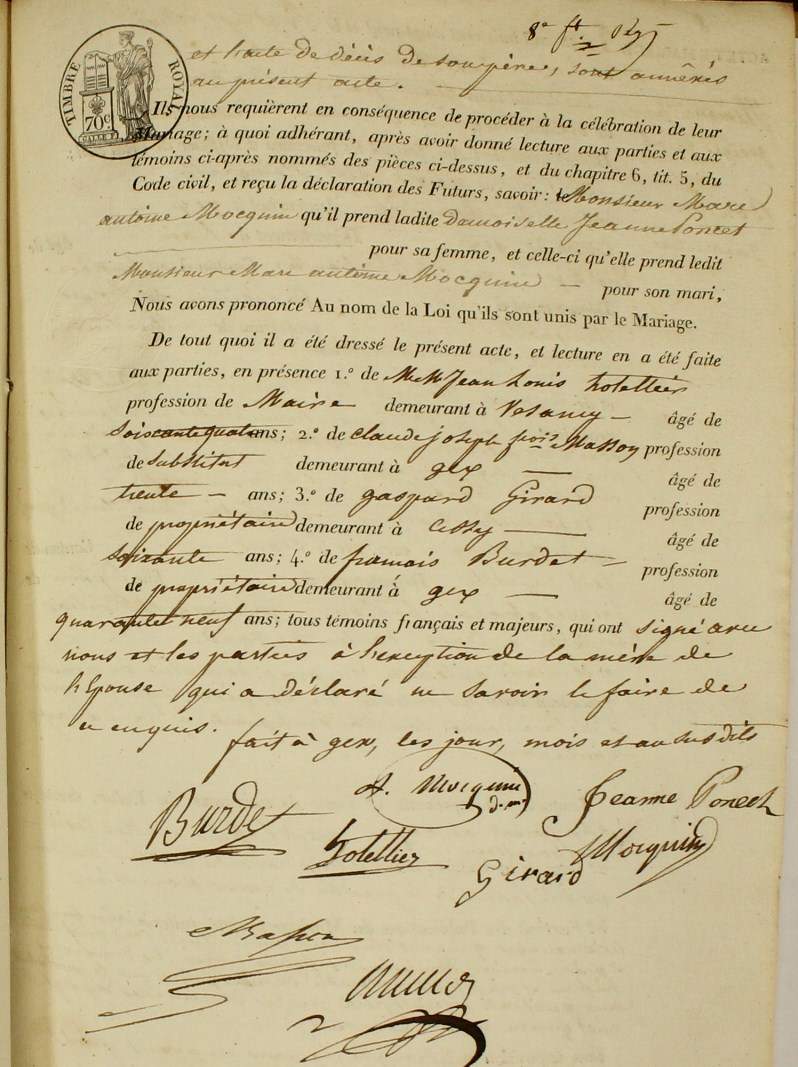 8e ft
TIMBRE ROYAL
70c
et l'acte de décès de son père, sont annéxés
au présent acte.
Ils nous requièrent en conséquence de procéder à la célébration de leur
Mariage; à quoi adhérant, après avoir donné lecture aux parties et aux
témoins ci-après nommés des pièces ci-dessus, et du chapitre 6, tit. 5, du
Code civil, et reçu la déclaration des Futurs, savoir: le Monsieur Marc
antoine Mocquin qu'il prend ladite Demoiselle Jeanne Poncet
pour sa femme, et celle-ci qu'elle prend ledit
Monsieur Marc antoine Mocquin — pour son mari,
Nous avons prononcé Au nom de la Loi qu'ils sont unis par le Mariage.
De tout quoi il a été dressé le présent acte, et lecture en a été faite
aux parties, en présence 1.º de MM Jean Louis hotellier
profession de Maire demeurant à Vesancy — âgé de
soixante quatre ans; 2.º de Claude joseph fçois Masson profession
de Substitut demeurant à gex — âgé de
trente — ans; 3.º de gaspard Girard profession
de propriétaire demeurant à Cessy — âgé de
soixante ans; 4.º de françois Burdet — profession
de propriétaire demeurant à gex — âgé de
quarante neuf ans; tous témoins français et majeurs, qui ont signé avec
nous et les parties à l'exception de la mère de
l'Epouse qui a déclaré ne savoir le faire de
ce enquis.
fait à gex, les jour, mois et an susdits
A. Mocquin
Jeanne Poncet
Burdet
hotellier
Girard
Mocquin
Masson